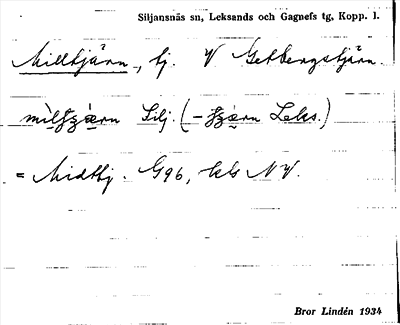 Siljansnäs sn, Leksands och Gagnefs tg, Kopp. l.
Milltjärn, tj. V Getbergstjärn.
Silj. (- Leks.)
= Midtj. G96, kls NV.
Bror Lindén 1934